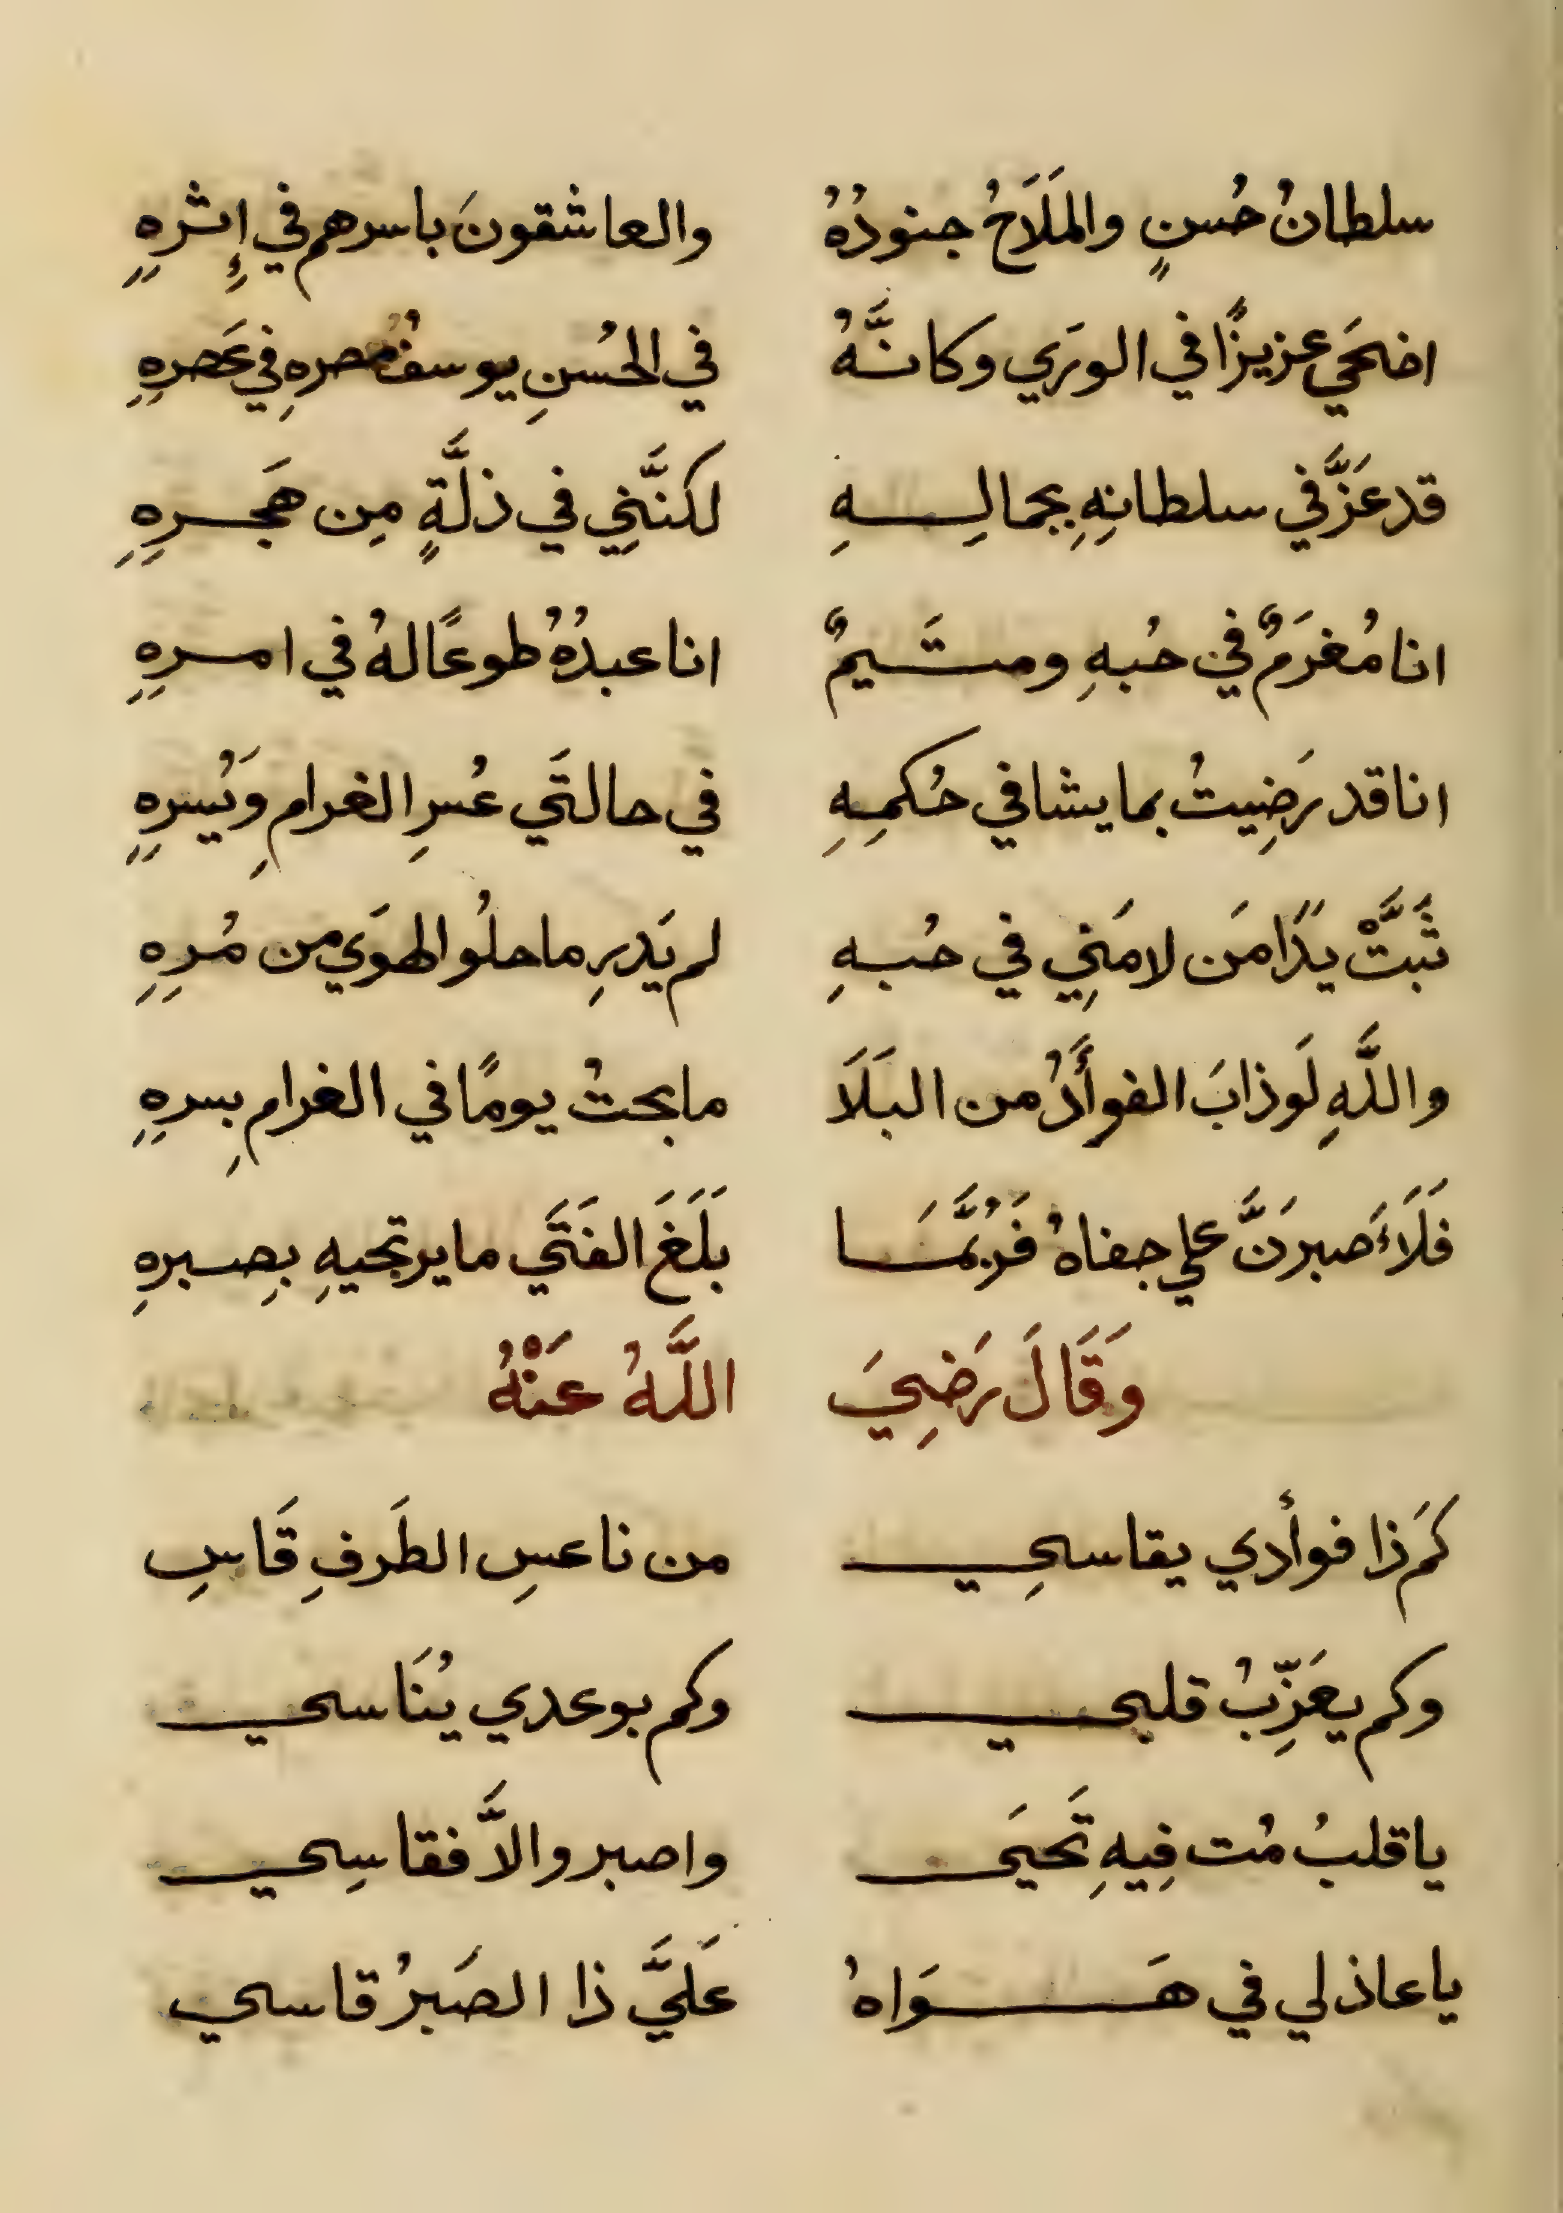 سلطانُ حُسنٍ والملَاحُ جنودُهُ والعاشقونَ باسرهم في إِثرهِ
اضحَي عزيزًا في الورَي وكانَّهُ في الحُسنِ يوسفُ مصرهِ في عَصرِهِ
قد عَزَّ في سلطانِهِ بجمالِهِ لكنَّنِي في ذلَّةٍ مِن هَجرِهِ
انا مُغرَمٌ في حُبهِ ومتَيمٌ انا عبدُهُ طوعًا لهُ في امرِهِ
انا قد رَضِيتُ بما يشا في حُكمِهِ في حالتَي عُسرِ الغرامِ وَيُسرِهِ
ثَبَتَّْ يدًا مَن لامَنِي في حُبهِ لم يَدرِ ما حلُو الهوَي من مُرِهِ
واللَّهِ لَو ذابَ الفوأَدُ من البَلَا ما بحتُ يومًا في الغرامِ بِسرِهِ
فَلَاءَصبرَنَّ علي جفاهُ فَرُبَّمَا بَلَغَ الفَتَي ما يرتجيهِ بِصبرهِ
وَقَالَ رَضِيَ اللَّهُ عَنْهُ
كَم ذا فوأدي يقاسِي من ناعسِ الطَرفِ قَاسِ
وكم يعَزِّبُ قلبي وكم بوعدي يُنَاسي
يا قلبُ مُت فِيهِ تَحيَى واصبر والاَّ فقاسِي
يا عاذلي في هَوَاهُ عَلَيَّ ذا الصَبرُ قاسي